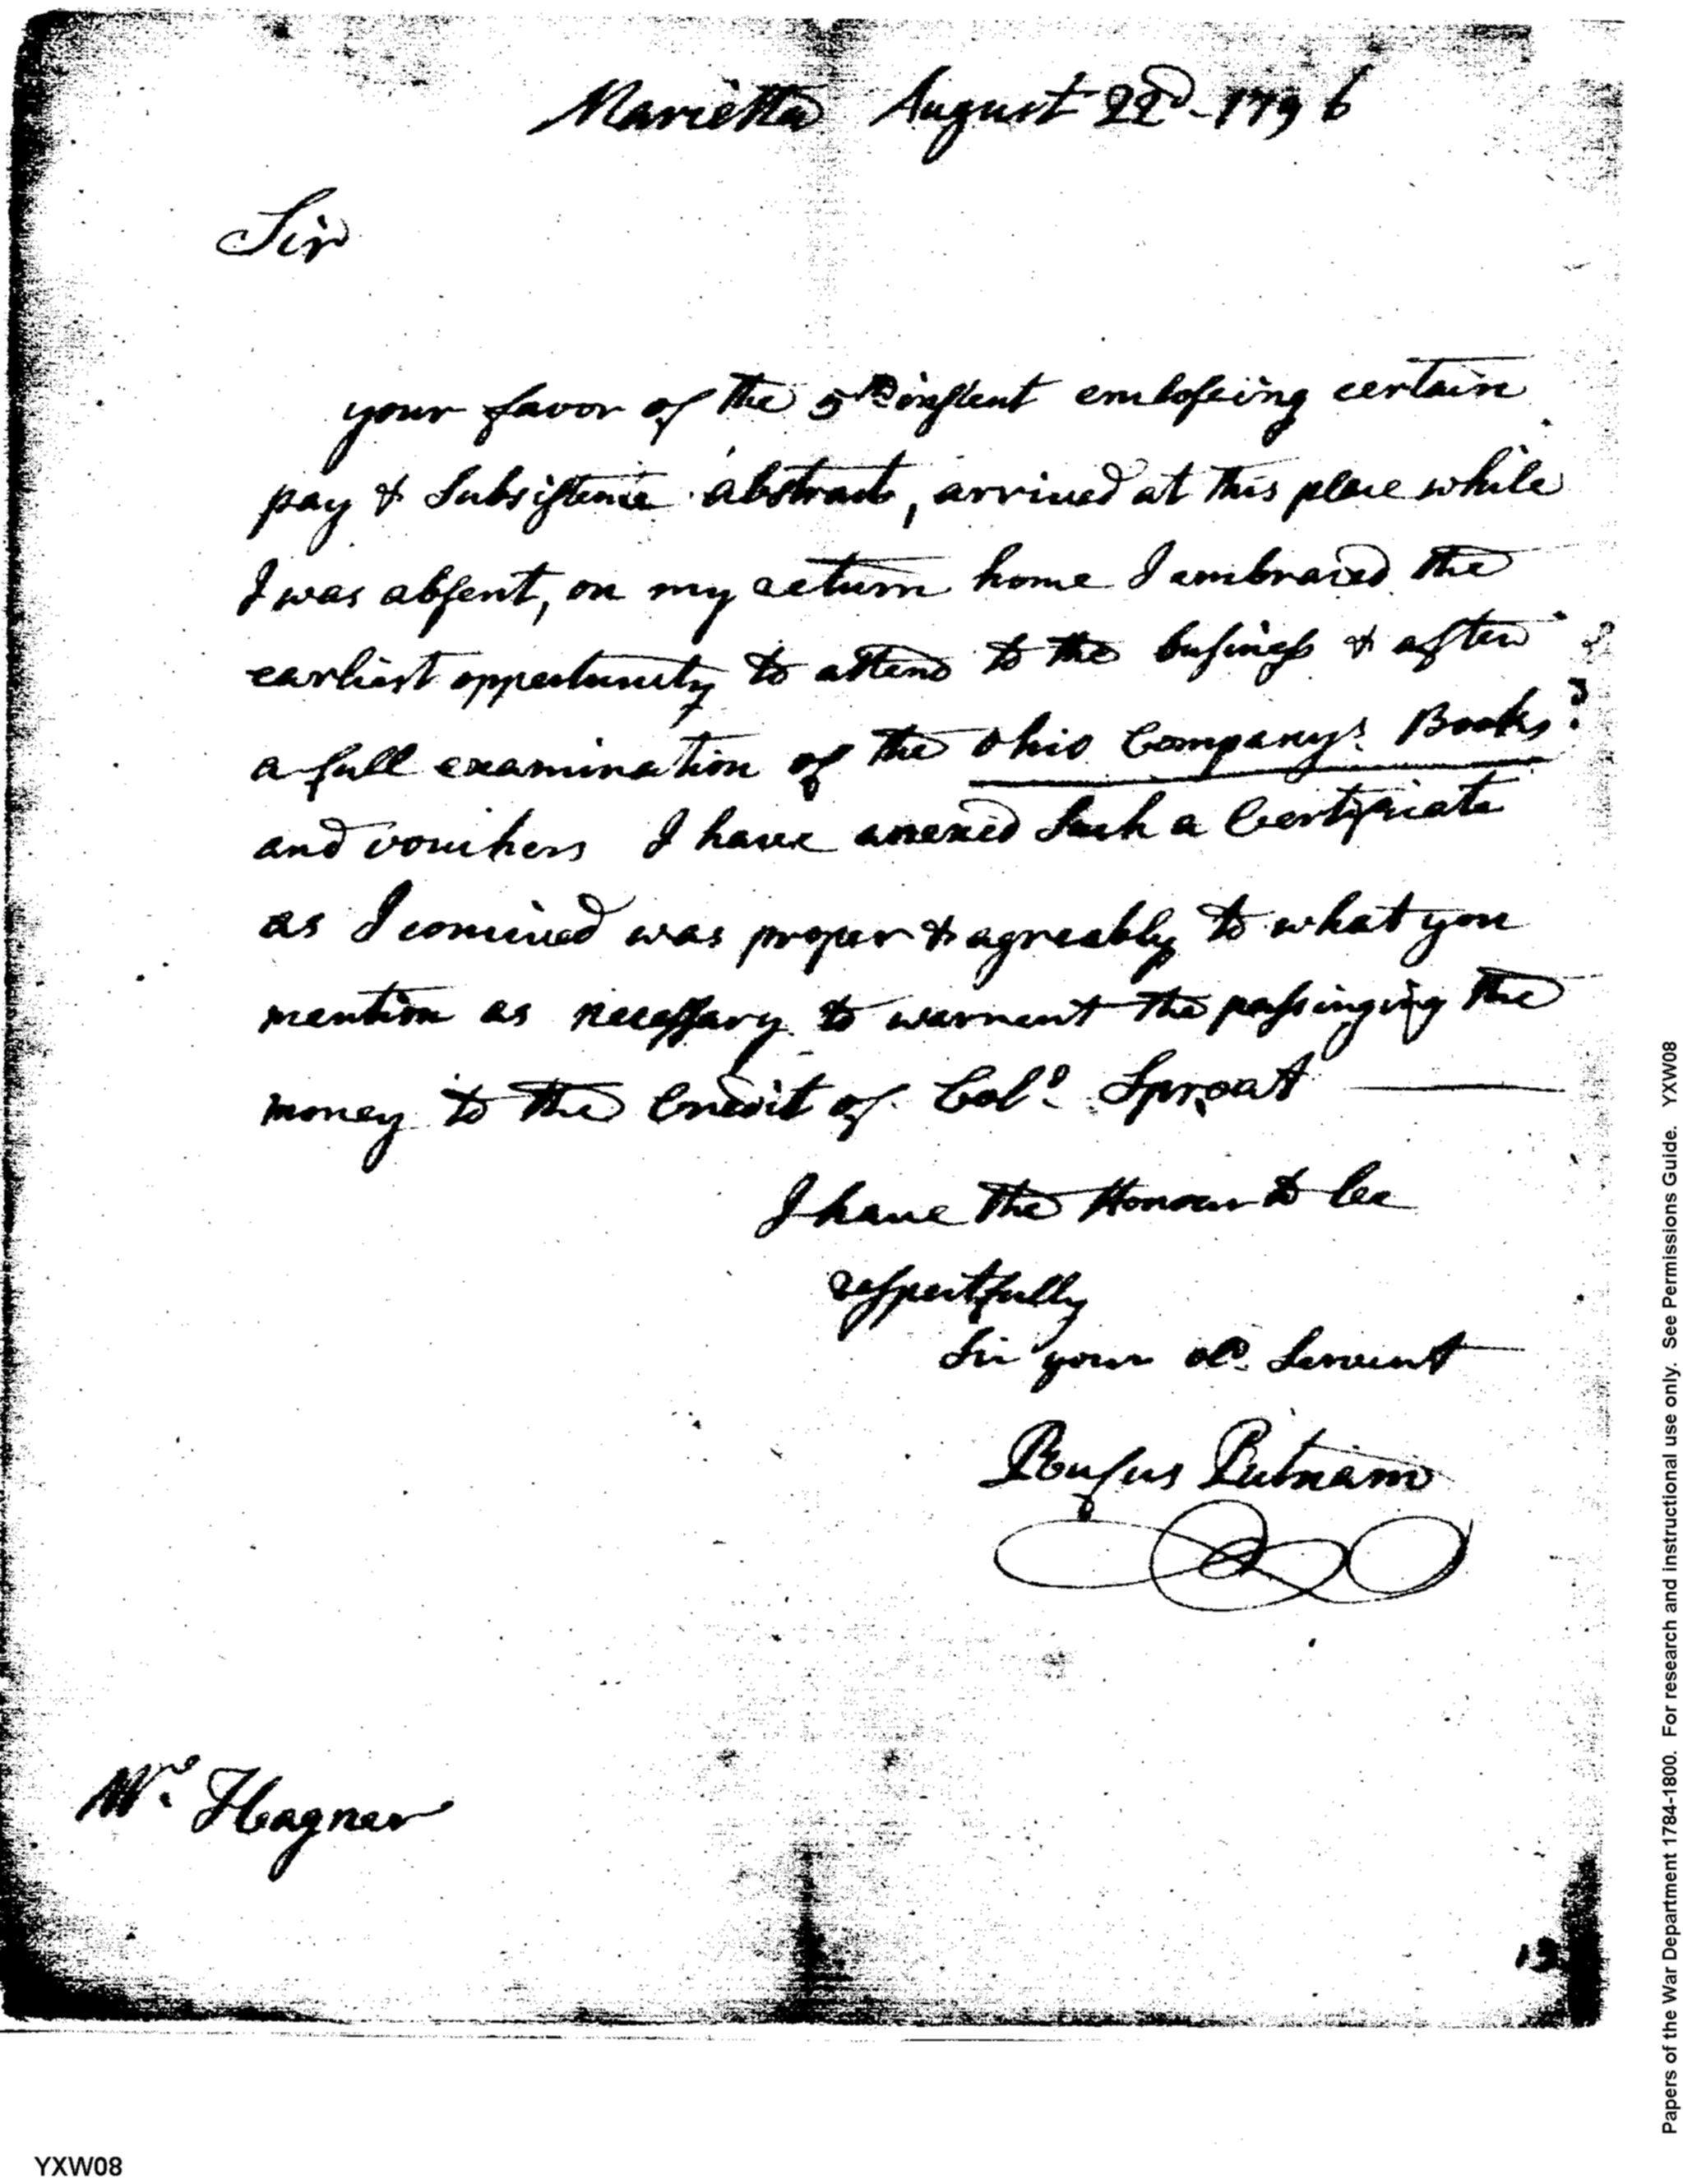 Marietta August 22d - 1796
Sir
your favor of the 5th instent encloseing certain
pay & Subsistence abstracts, arrived at this place while
I was absent, on my return home I embraced the
earliest oppertunity to attend to the business & after
a full examination of the Ohio Companys Books
and vouchers I have anexed Such a Certificate
as I concived was proper & agreably to what you
mention as necessary to warrent the passinging the
money to the Credit of Colo. Sproat
I have the Honour to be
respectfully
Sir your ob. Servent
Rufus Putnam
Mr. Hagner
Papers of the War Department 1784-1800. For research and instructional use only. See Permissions Guide. YXW08
YXW08